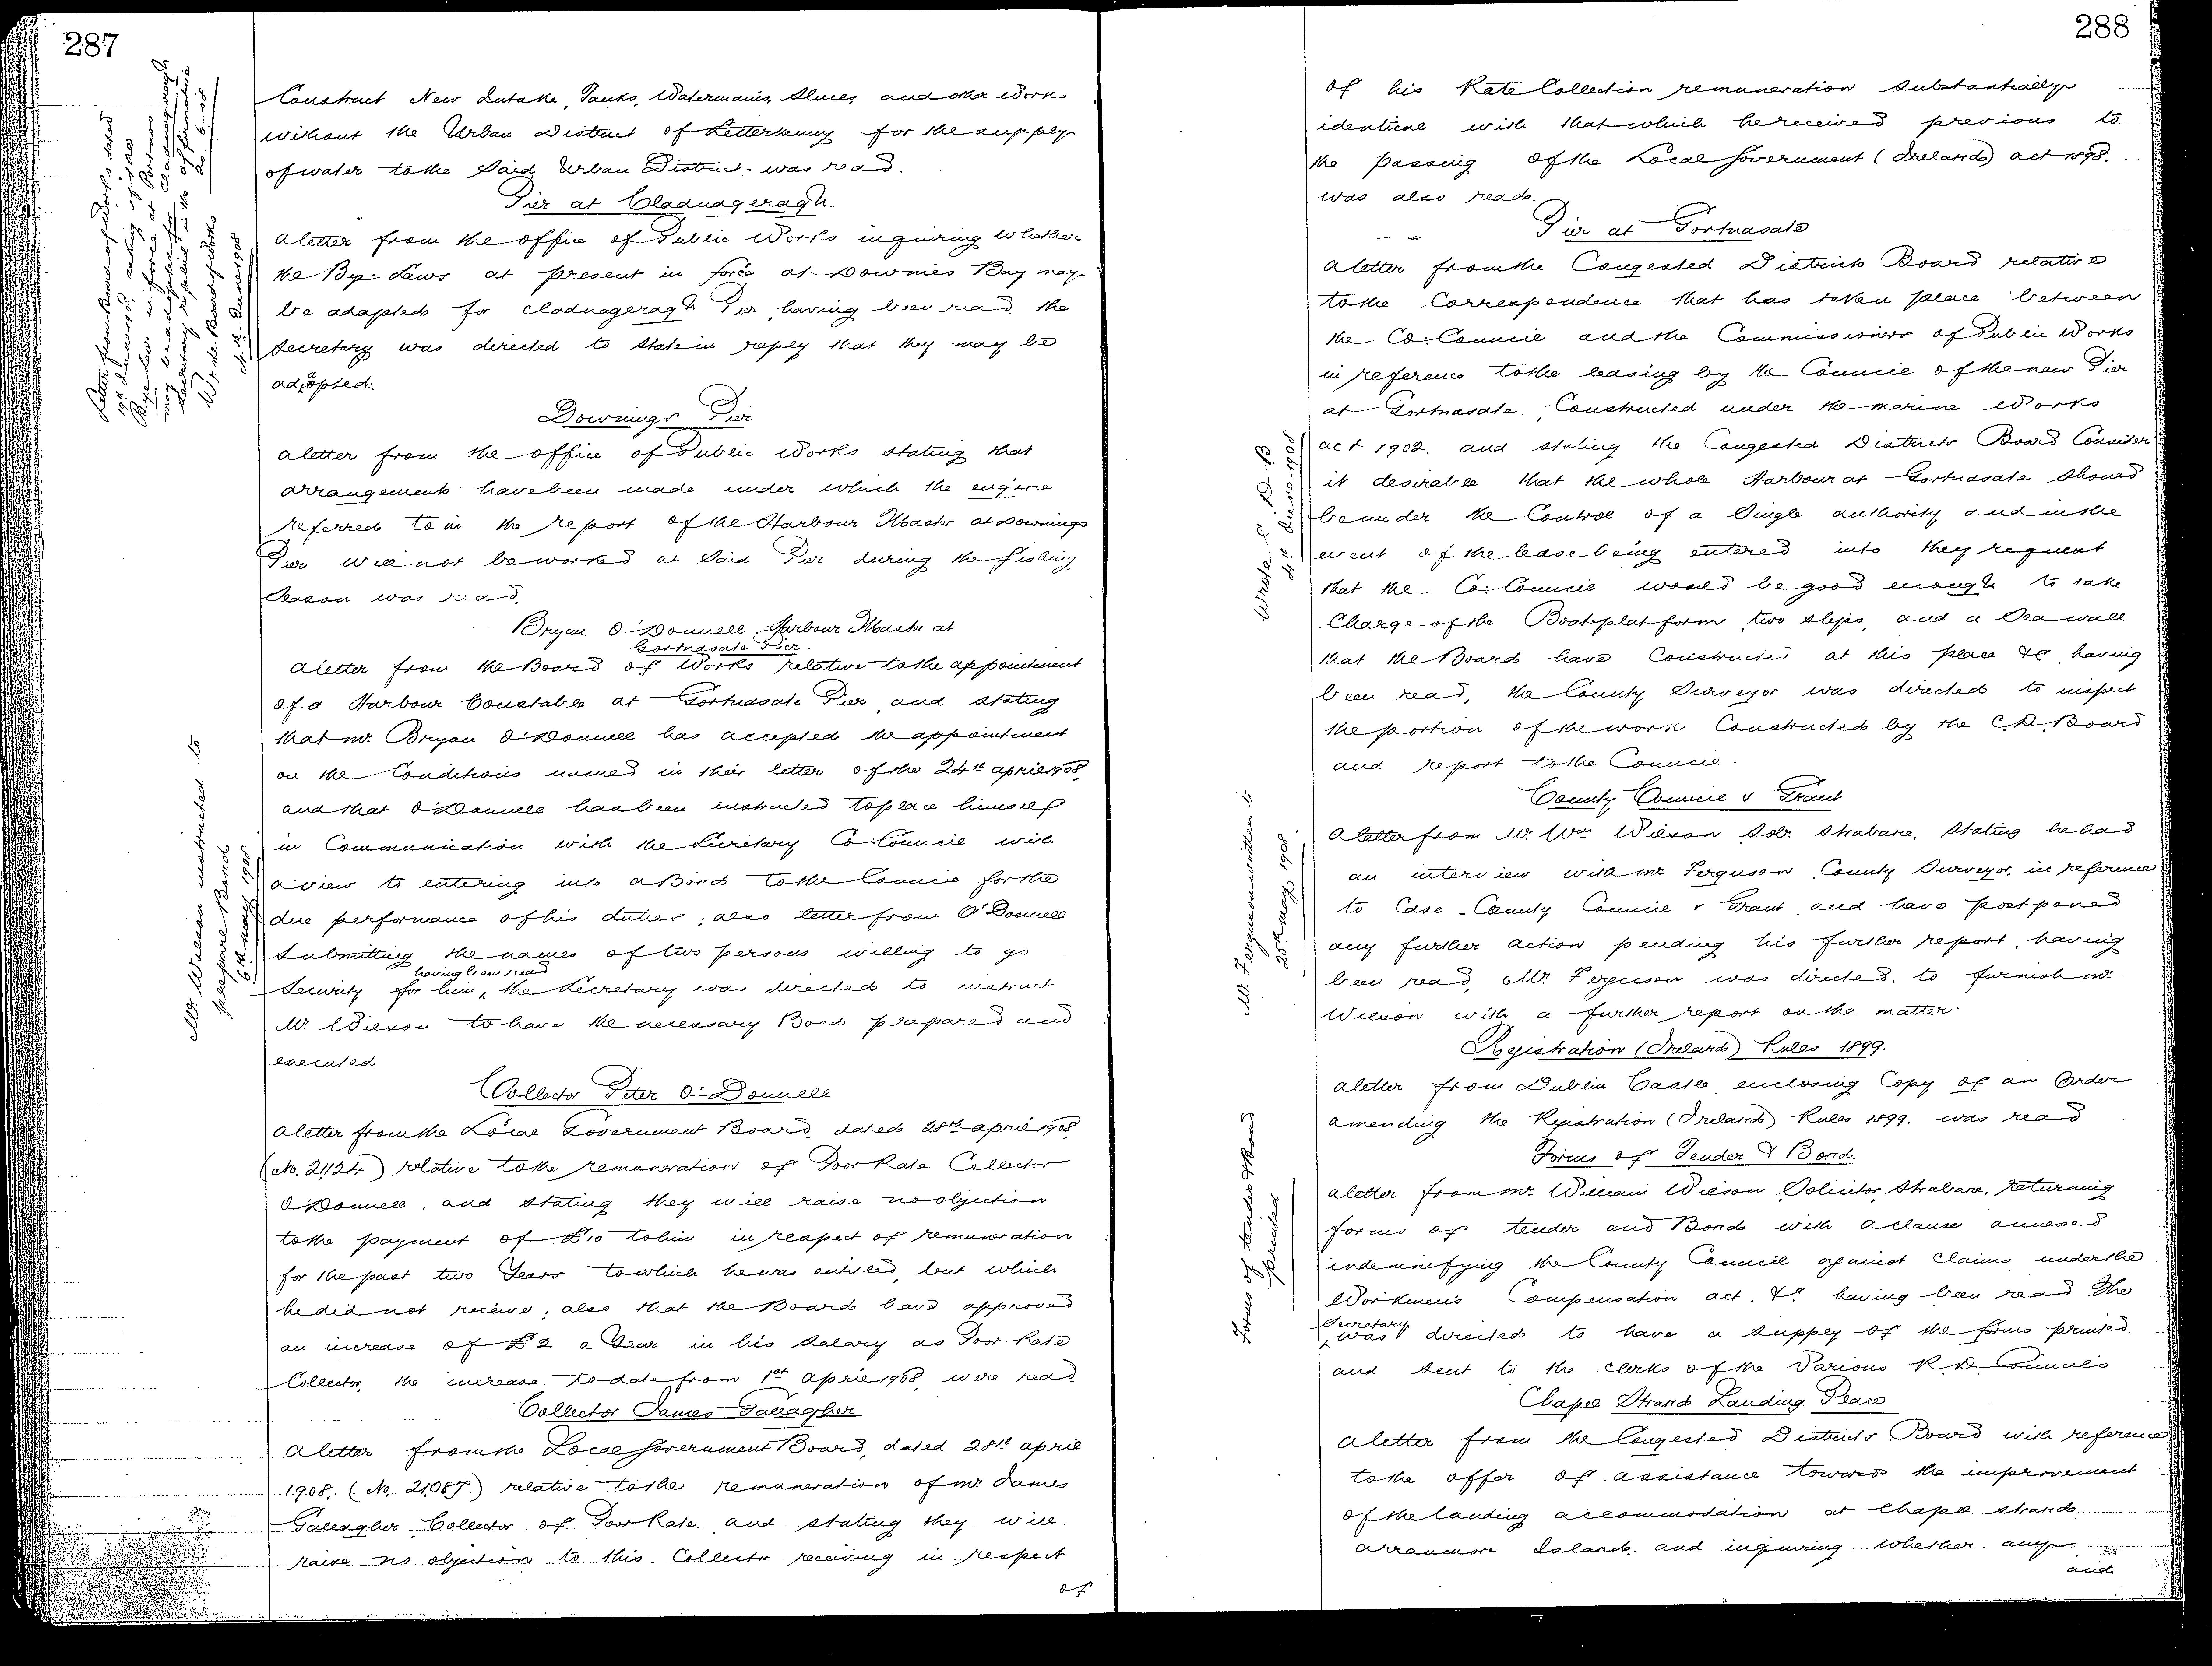 287
Construct New Intake, Tanks, Watermains, Sluices and other Works
without the Urban District of Letterkenny for the supply
of water to the Said Urban District. was read.
Pier at Cladnageragh
a letter from the office of Public Works inquiring whether
the Bye-Laws at present in force at Downies Bay may
be adapted for Cladnageragh Pier, having been read the
Secretary was directed to state in reply that they may be
adopted.
Downings Pier
a letter from the office of Public Works stating that
arrangements have been made under which the engine
referred to in the report of the Harbour Master at Downings
Pier will not be worked at Said Pier during the fishing
Season was read.
Bryan O'Donnell Harbour Master at
Gortnasate Pier.
a letter from the Board of Works relative to the appointment
of a Harbour Constable at Gortnasate Pier, and stating
that Mr. Bryan O'Donnell has accepted the appointment
on the Conditions named in their letter of the 24th april 1908,
and that O'Donnell has been instructed to place himself
in Communication with the Secretary Co: Council with
a view to entering into a Bond to the Council for the
due performance of his duties; also letter from O'Donnell
Submitting the names of two persons willing to go
having been read
Security for him, the Secretary was directed to instruct
Mr. Wilson to have the necessary Bond prepared and
executed.
Collector Peter O'Donnell
a letter from the Local Government Board, dated 28th april 1908,
(No. 21,124) relative to the remuneration of Poor Rate Collector
O'Donnell, and stating they will raise no objection
to the payment of £10 to him in respect of remuneration
for the past two Years to which he was entitled, but which
he did not receive; also that the Board have approved
an increase of £2 a Year in his Salary as Poor Rate
Collector, the increase to date from 1st april 1908, were read
Collector James Gallagher
a letter from the Local Government Board, dated 28th april
1908. (No. 21,087.) relative to the remuneration of Mr. James
Gallagher, Collector of Poor Rate and stating they will
raise no objection to this Collector receiving in respect
of
Letter from Board of Works dated
Bye Laws in force at
may be adapted for Cladnageragh
Secretary replied in the affirmative
Wrote Board of Works
4th June 1908
Mr Wilson instructed to
prepare Bond
6th May 1908
288
of his Rate Collection remuneration substantially
identical with that which he received previous to
the passing of the Local Government (Ireland) act 1898.
was also read.
Pier at Gortnasate
a letter from the Congested Districts Board relative
to the Correspondence that has taken place between
the Co: Council and the Commissioners of Public Works
in reference to the leasing by the Council of the new Pier
at Gortnasate, Constructed under the marine Works
act 1902. and stating the Congested Districts Board Consider
it desirable that the whole Harbour at Gortnasate should
be under the Control of a Single authority and in the
event of the lease being entered into they request
that the Co: Council would be good enough to take
Charge of the Boatplatform, two slips, and a Sea wall
that the Board have Constructed at this place &c, having
been read, the County Surveyor was directed to inspect
the portion of the work Constructed by the C.D. Board
and report to the Council.
County Council v Grant
a letter from Mr. Wm Wilson Solr. Strabane, Stating he had
an interview with Mr. Ferguson County Surveyor, in reference
to Case - County Council v Grant and have postponed
any further action pending his further report, having
been read, Mr. Ferguson was directed. to furnish Mr.
Wilson with a further report on the matter.
Registration (Ireland) Rules 1899.
a letter from Dublin Castle enclosing Copy of an Order
amending the Registration (Ireland) Rules 1899. was read
Forms of Tender & Bond.
a letter from Mr. William Wilson Solicitor, Strabane, returning
forms of tender and Bond with a clause annexed
indemnifying the County Council against Claims under the
Workmen's Compensation act. &c having been read The
Secretary
was directed to have a supply of the forms printed
and sent to the Clerks of the Various R.D. Councils
Chapel Strand Landing Place
a letter from the Congested Districts Board with reference
to the offer of assistance towards the improvement
of the landing accommodation at Chapel Strand
Arranmore Island, and inquiring whether any
and
Wrote C.D.B
4th June 1908
Mr. Ferguson written to
25th May 1908.
Forms of tender & Bond
printed